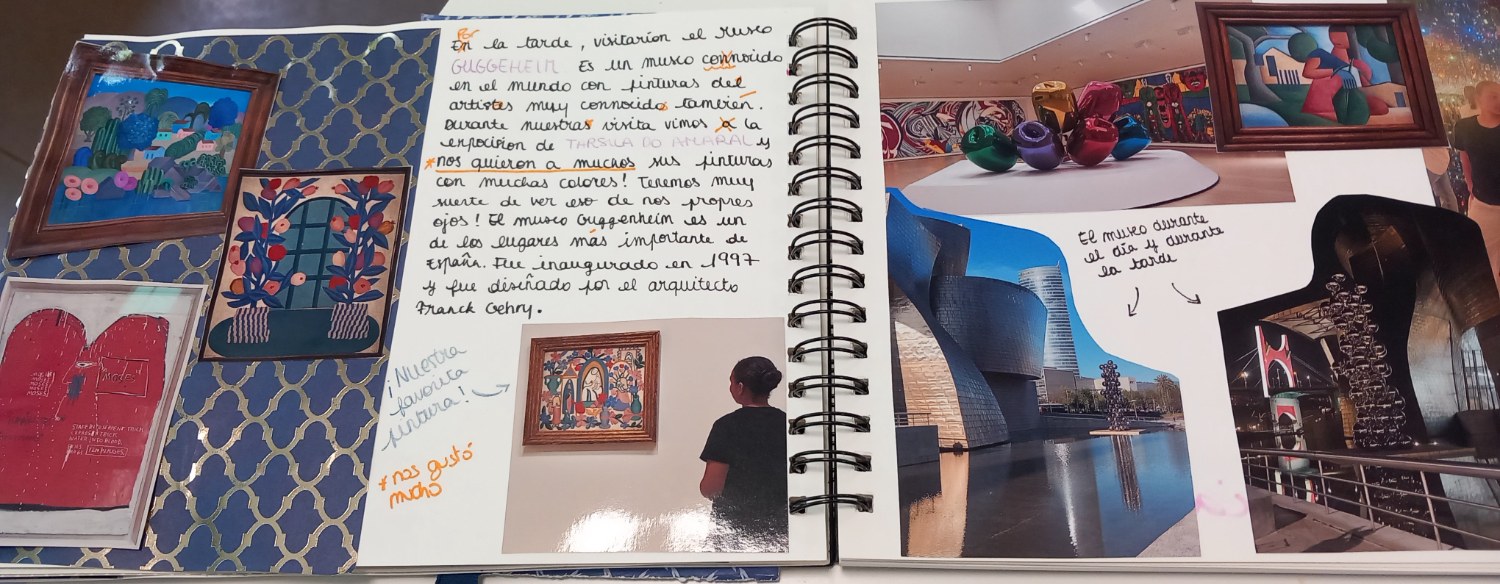 Por
En la tarde, visitarion el museo
GUGGEHEIM Es un museo connocido
en el mundo con pinturas del
artistes muy connocidos tambien.
Durante nuestras visita vimos a la
exposicion de TARSILA DO AMARAL y
*nos quieron a muchos sus pinturas
con muchas colores! Tenemos muy
suerte de ver eso de nos propres
ojos! El museo Guggenheim es un
de los lugares más importante de
España. Fue inaugurado en 1997
y fue diseñado por el arquitecto
Franck Gehry.
¡Nuestra
favorita
pintura!
*nos gustó
mucho
El museo durante
el día y durante
la tarde